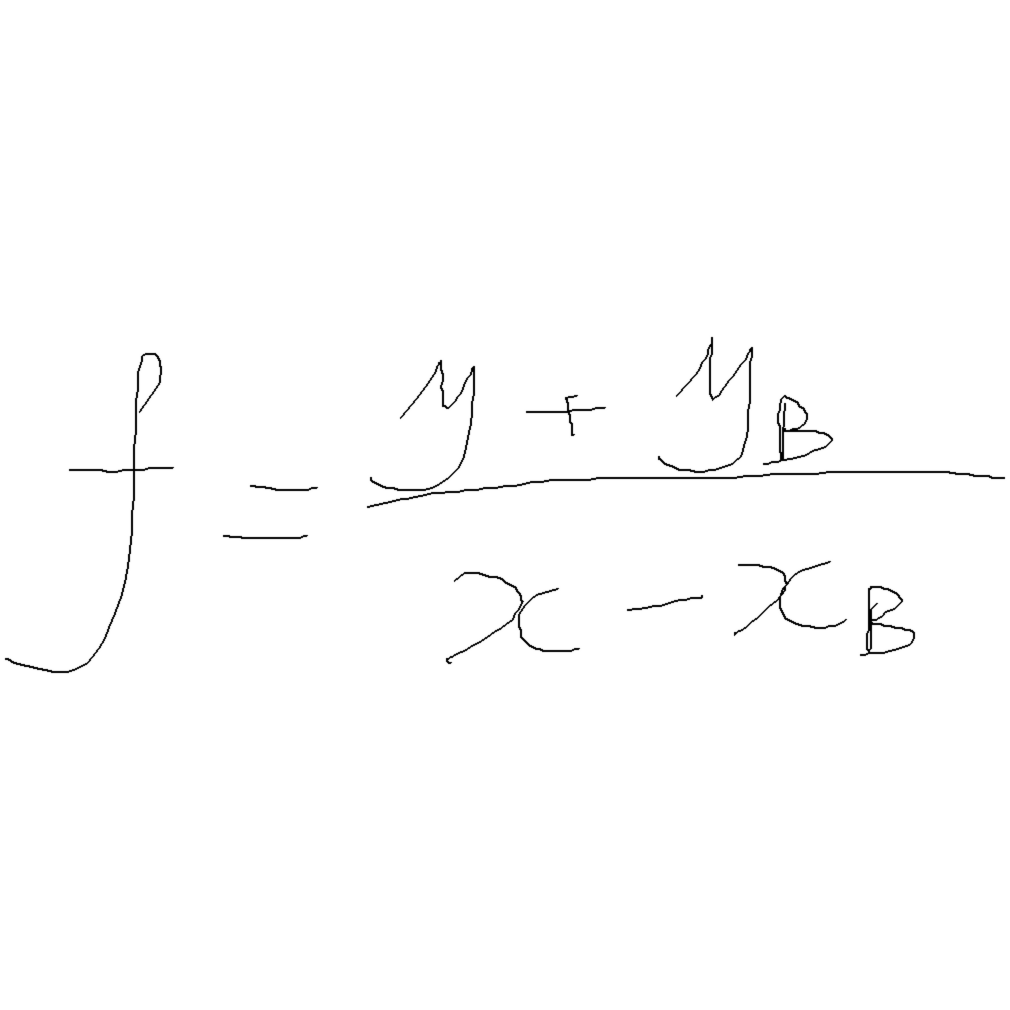 f = \frac{y + y_B}{x - x_B}